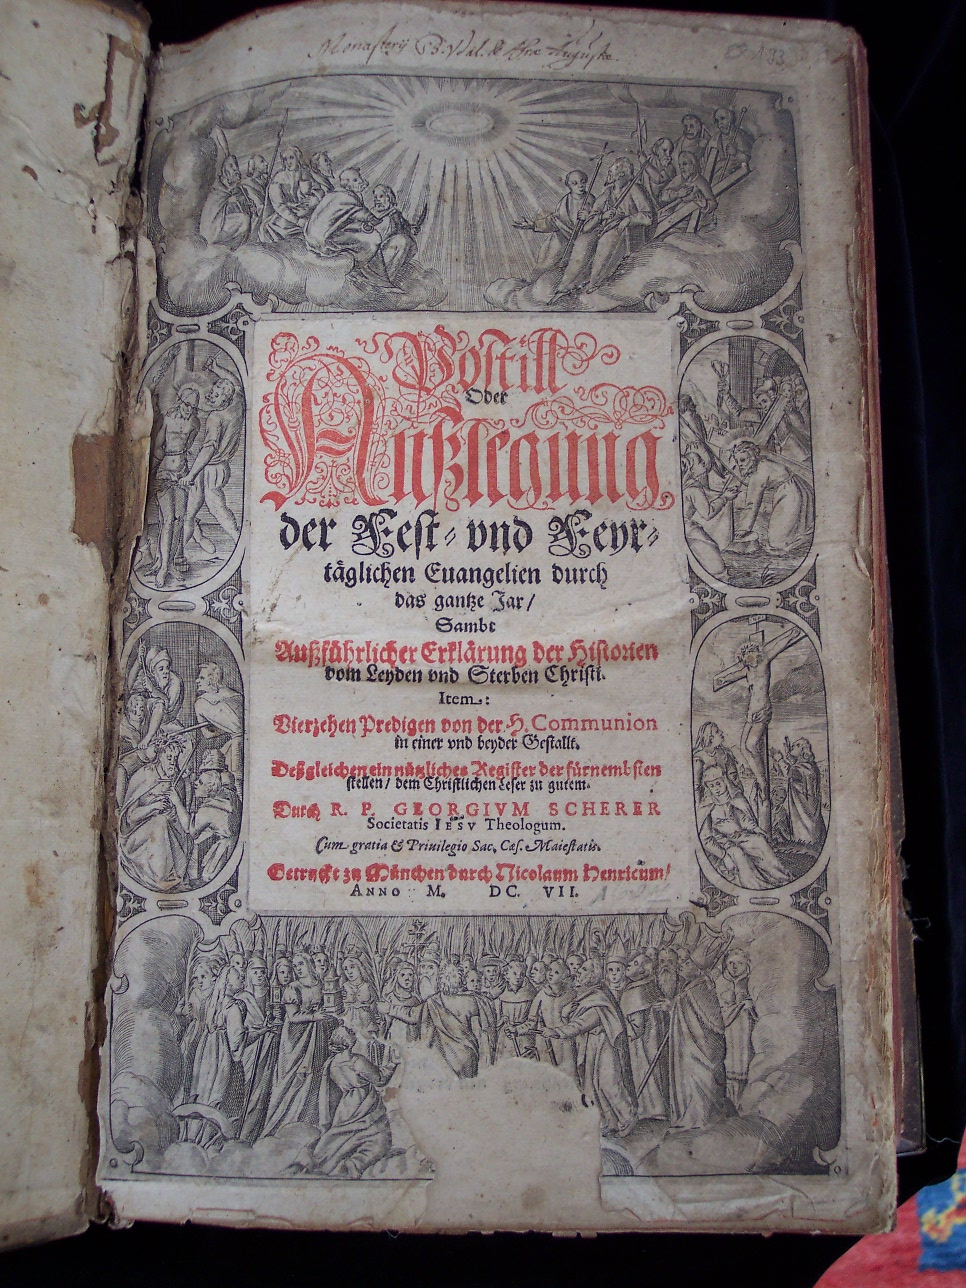 Monasterij B. Val.
Postill
Oder
Außlegung
der Fest- vnd Feyr-
täglichen Euangelien durch
das gantze Jar/
Sambt
Außführlicher Erklärung der Historien
vom Leyden vnd Sterben Christi.
Item:
Vierzehen Predigen von der H. Communion
in einer vnd beyder Gestallt.
Deßgleichen ein nützliches Register der fürnembsten
stellen/ dem Christlichen Leser zu gutem.
Durch R. P. GEORGIVM SCHERER
Societatis IESV Theologum.
Cum gratia & Priuilegio Sac. Cæs. Maiestatis.
Getruckt zu München durch Nicolaum Henricum/
ANNO M. DC. VII.